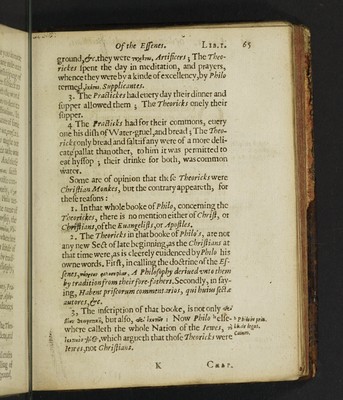 Of the Essenes. LIB. 1. 65
ground, &c. they were Artificers; The Theo-
rickes spent the day in meditation, and prayers,
whence they were by a kinde of excellency, by Philo
termed, Supplicantes.
3. The Practickes had every day their dinner and
supper allowed them; The Theoricks onely their
supper.
4 The Practicks had for their commons, every
one his dish of Water-gruel, and bread; The Theo-
ricks only bread and salt: if any were of a more deli-
cate pallat than other, to him it was permitted to
eat hyssop; their drinke for both, was common
water.
Some are of opinion that these Theoricks were
Christian Monkes, but the contrary appeareth, for
these reasons:
1. In that whole booke of Philo, concerning the
Theorickes, there is no mention either of Christ, or
Christians, of the Euangelists, or Apostles.
2. The Theoricks in that booke of Philo's, are not
any new Sect of late beginning, as the Christians at
that time were, as is cleerely euidenced by Philo his
owne words. First, in calling the doctrine of the Es-
senes, A Philosophy derived unto them
by tradition from their fore-fathers. Secondly, in say-
ing, Habent priscorum commentarios, qui huius sectæ
autores, &c.
3, The inscription of that booke, is not only
but also, Now Philo else-
where calleth the whole Nation of the Iewes,
which argueth that those Theoricks were
Iewes, not Christians.
K CHAP.